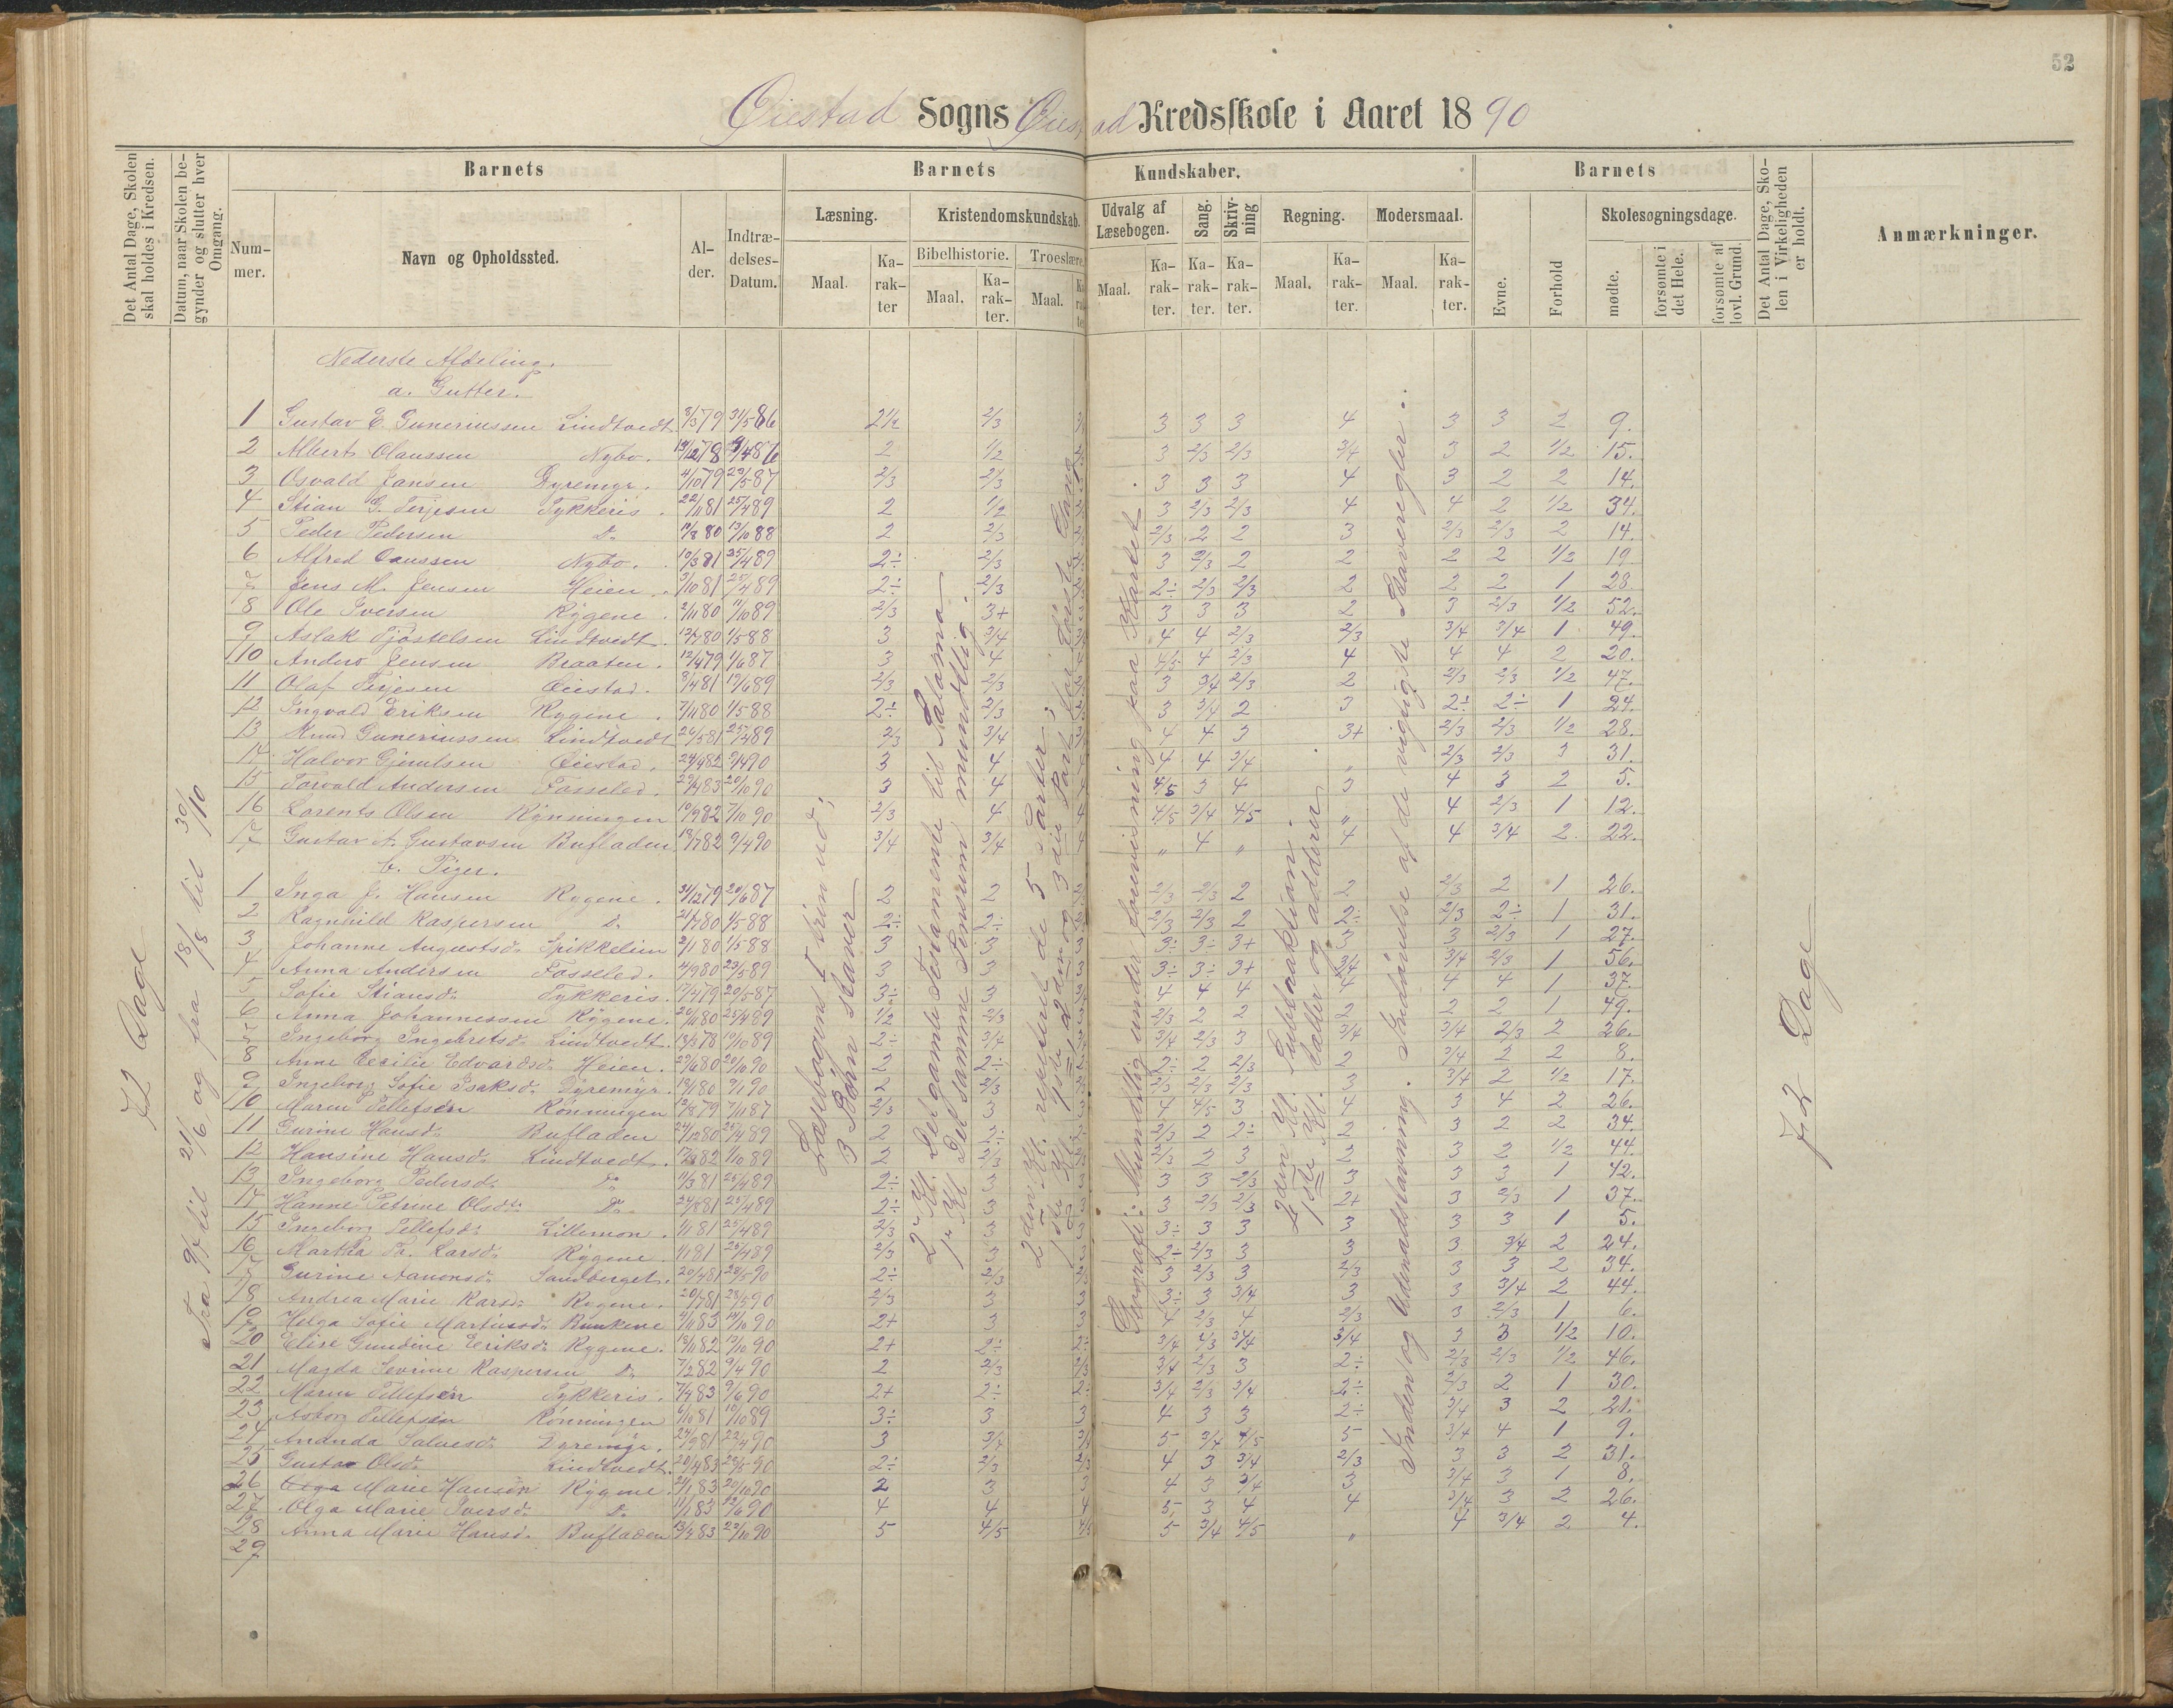 52
Øiestad Sogns Øiestad Kredsskole i Aaret 1890
Det Antal Dage, Skolen skal holdes i Kredsen.
Datum, naar Skolen begynder og slutter hver Omgang.
Barnets
Nummer.
Navn og Opholdssted.
Alder.
Indtrædelses-Datum.
Barnets Kundskaber.
Læsning.
Maal.
Karakter
Kristendomskundskab.
Bibelhistorie.
Maal.
Karakter.
Troeslære.
Maal.
Udvalg af Læsebogen.
Maal.
Karakter.
Sang.
Karakter.
Skrivning
Karakter.
Regning.
Maal.
Karakter.
Modersmaal.
Maal.
Karakter.
Barnets
Evne.
Forhold
Skolesøgningsdage.
mødte.
forsømte i det Hele.
forsømte af lovl. Grund.
Det Antal Dage, Skolen i Virkeligheden er holdt.
Anmærkninger.
72 Dage
Fra 9/4 til 21/6 og fra 18/8 til 30/10
Nederste Afdeling.
a. Gutter.
1 Gustav E. Guneriussen Lindtvedt 31/5 86 2½ 2/3 3 3 3 4 3 3 2 9.
2 Albert Olaussen Nybo. 2 1/2 3 2/3 2/3 3/4 3 2 1/2 15.
3 Osvald Jansen Dyremyr. 4/10 79 23/5 87 2/3 2/3 3 3 3 4 3 2 2 14.
4 Stian G. Terjesen Tykkeris. 22/11 81 25/4 89 2 1/2 3 2/3 2/3 4 4 2 1/2 34.
5 Peder Pedersen Do 13/10 88 2 2/3 2/3 2 2 3 2/3 2/3 2 14.
6 Alfred Oaussen Nybo. 10/3 81 25/4 89 2÷ 2/3 3 2/3 2 2 2 2 1/2 19
7 Jens M. Jensen Heien. 25/4 89 2÷ 2/3 2÷ 2/3 2/3 2 2 2 1 28
8 Ole Iversen Rygene. 2/11 80 11/10 89 2/3 3+ 3 3 3 2 3 2/3 1/2 52.
9 Aslak Tjøstelsen Lindtvedt. 1/5 88 3 3/4 4 4 2/3 2/3 3/4 3/4 1 49.
10 Anders Jensen Braaten. 12/4 79 1/6 87 3 4 4/5 4 2/3 4 4 4 2 20.
11 Olaf Terjesen Øiestad. 8/4 81 19/6 89 2/3 2/3 3 3/4 2/3 2 2/3 2/3 1/2 47.
12 Ingvald Eriksen Rygene. 7/11 80 1/5 88 2÷ 2/3 3 3/4 2 3 2÷ 2÷ 1 24.
13 Knud Guneriussen Lindtvedt 26/5 81 25/4 89 2/3 3/4 4 4 3 3+ 2/3 2/3 1/2 28.
14 Halvor Gjerulsen Øiestad. 9/4 90 3 4 4 4 3/4 „ 2/3 2/3 3 31.
15 Torvald Andersen Fosseled. 20/10 90 3 4 4/5 3 4 3 4 3 2 5.
16 Lorents Olsen Rønningen 10/9 82 7/10 90 2/3 4 4/5 3/4 4/5 „ 4 2/3 1 12.
17 Gustav A. Gustavsen Bufladen 9/4 90 3/4 3/4 „ 4 „ 4 4 3/4 2 22.
b. Piger.
1 Inga J. Hansen Rygene. 31/12 79 20/6 87 2 2 2/3 2/3 2 2 2/3 2 1 26.
2 Ragnhild Kaspersen Do 1/5 88 2÷ 2÷ 2/3 2/3 2 2÷ 2/3 2÷ 1 31.
3 Johanne Augustsd. Spikkelien 2/1 80 1/5 88 3 3 3÷ 3÷ 3+ 3 3 2/3 1 27.
4 Anna Andersen Fosseled. 4/9 80 23/5 89 3 3 3÷ 3÷ 3+ 3/4 3/4 2/3 1 56.
5 Sofie Stiansd. Tykkeris. 17/4 79 20/5 87 3÷ 3 4 4 4 4 4 4 1 37.
6 Anna Johannessen Rygene. 20/11 80 25/4 89 1/2 2/3 2/3 2 2 2 2 2 1 49.
7 Ingeborg Ingebretsd. Lindtvedt. 11/10 89 2÷ 3/4 3/4 2/3 3 3/4 3/4 2/3 2 26.
8 Anne Cecilie Edvardsd. Heien. 20/10 90 2 2÷ 2÷ 2 2/3 2 3/4 2 2 8.
9 Ingeborg Sofie Isaksd. Dyremyr. 2 2/3 2/3 2/3 2/3 3 3/4 2 1/2 17.
10 Maren Tellefsen Rønningen 7/11 87 2/3 3 4 4/5 3 4 3 4 2 26.
11 Gurine Hansd. Bufladen 24/12 80 25/4 89 2 2÷ 2/3 2 2÷ 2 3 2 2 34.
12 Hansine Hansd. Lindtvedt. 1/10 89 2 2/3 2/3 2 3 2 3 2 1/2 44.
13 Ingeborg Pedersd. Do 25/4 89 2÷ 3 3 3 2/3 3 3 3 1 42.
14 Hanne Petrine Olsd. Do 25/4 89 2÷ 3 3 2/3 2/3 2+ 3 2/3 1 37.
15 Ingeborg Tellefsd. Lillemon. 1/1 81 25/4 89 2/3 3 3÷ 3 3 3 3 3 1 5.
16 Martha Th. Larsd. Rygene. 1/1 81 25/4 89 2/3 3 2÷ 2/3 3 3 3 3/4 2 24.
17 Gurine Aanonsd. Sandberget. 20/4 81 28/5 90 2÷ 2/3 3 2/3 3 2/3 3 3 2 34.
18 Andrea Marie Larsd. Rygene. 28/5 90 2/3 3 3÷ 3 3/4 3 3 3/4 2 44.
19 Helga Sofie Martinsd. Bunkene 14/10 90 2+ 3 4 2/3 4 2/3 3 2/3 1 6.
20 Elise Gundine Eriksd. Rygene. 13/10 90 2+ 2÷ 3/4 4/3 3/4 3/4 3 3 1/2 10.
21 Magda Sevrine Kaspersen Do 7/2 82 9/4 90 2 2/3 3/4 2/3 3 2÷ 2/3 2/3 1/2 46.
22 Maren Tellefsen Tykkeris. 7/4 83 9/6 90 2+ 2÷ 3/4 2/3 3/4 2÷ 2/3 2 1 30.
23 Asborg Tellefsen Rønningen 6/10 81 10/10 89 3÷ 3 4 3 3 2÷ 3/4 3 2 21.
24 Ananda Salvesd. Dyremyr. 24/9 81 22/4 90 3 3/4 5 3/4 4/5 5 3/4 4 1 9.
25 Gusta Olsd. Lindtvedt. 20/4 83 28/5 90 2÷ 2/3 4 3 3/4 2/3 3 3 2 31.
26 Olga Marie Hansen Rygene. 21/1 83 20/10 90 2 3 4 3 3/4 3 3/4 3 1 8.
27 Olga Marie Iversd. Do 11/1 83 12/6 90 4 4 5 3 4 4 3/4 3 2 26.
28 Anna Marie Hansd. Bufladen 13/4 83 23/10 90 5 4/5 5 3/4 4/5 „ 4 3/4 2 4.
29
Læsebogens I trin ud;
3 Børn staver
2. Kl. Det gamle Testamente til Salomo
1. Kl. Det samme Pensum mundtlig.
2den Kl. repeteret de 5 Parter;
1ste Kl. 2den og 3die Part for første Gang
Geografi: Mundtlig under Henvisning paa Kartet.
2den Kl. Subtraktion.
1ste Kl. taller og adderer.
Inden og Udenadstavning. Indøvelse af de vigtigste Staveregler.
72 Dage